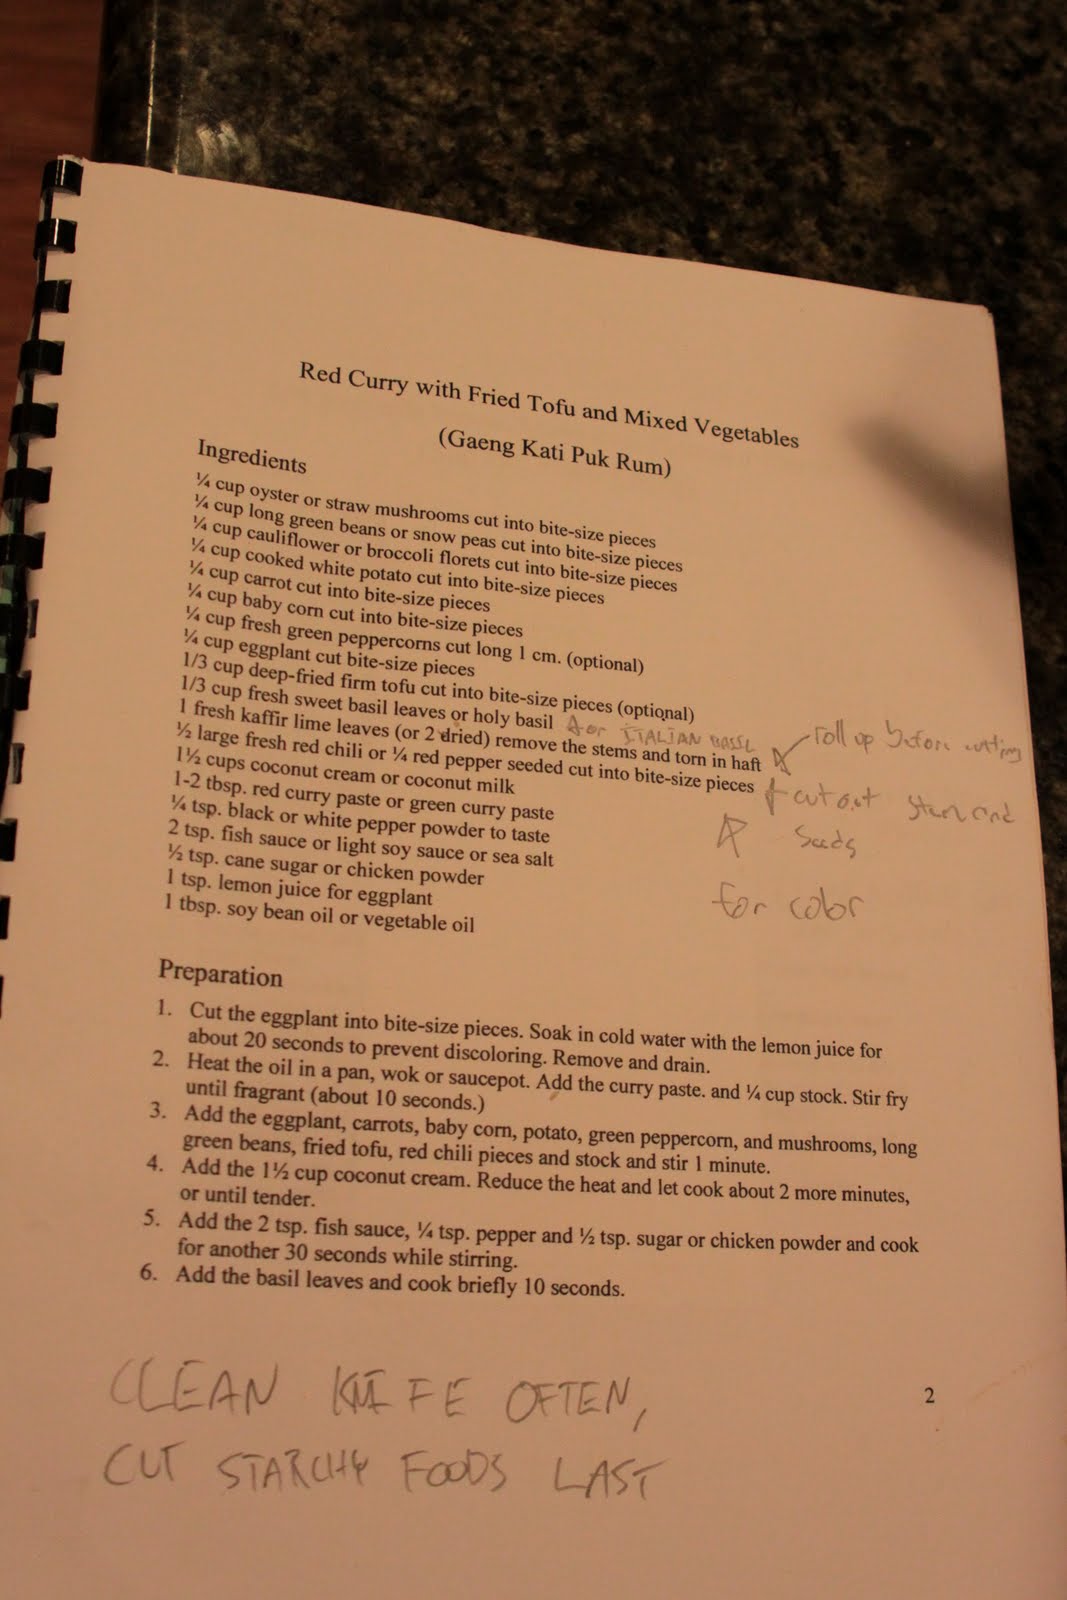 Red Curry with Fried Tofu and Mixed Vegetables
(Gaeng Kati Puk Rum)
Ingredients
¼ cup oyster or straw mushrooms cut into bite-size pieces
¼ cup long green beans or snow peas cut into bite-size pieces
¼ cup cauliflower or broccoli florets cut into bite-size pieces
¼ cup cooked white potato cut into bite-size pieces
¼ cup carrot cut into bite-size pieces
¼ cup baby corn cut into bite-size pieces
¼ cup fresh green peppercorns cut long 1 cm. (optional)
¼ cup eggplant cut bite-size pieces
1/3 cup deep-fried firm tofu cut into bite-size pieces (optional)
1/3 cup fresh sweet basil leaves or holy basil or ITALIAN BASIL
1 fresh kaffir lime leaves (or 2 dried) remove the stems and torn in haft roll up before cutting
½ large fresh red chili or ¼ red pepper seeded cut into bite-size pieces cut out stem and
seeds
for color
1½ cups coconut cream or coconut milk
1-2 tbsp. red curry paste or green curry paste
¼ tsp. black or white pepper powder to taste
2 tsp. fish sauce or light soy sauce or sea salt
½ tsp. cane sugar or chicken powder
1 tsp. lemon juice for eggplant
1 tbsp. soy bean oil or vegetable oil
Preparation
1. Cut the eggplant into bite-size pieces. Soak in cold water with the lemon juice for
about 20 seconds to prevent discoloring. Remove and drain.
2. Heat the oil in a pan, wok or saucepot. Add the curry paste. and ¼ cup stock. Stir fry
until fragrant (about 10 seconds.)
3. Add the eggplant, carrots, baby corn, potato, green peppercorn, and mushrooms, long
green beans, fried tofu, red chili pieces and stock and stir 1 minute.
4. Add the 1½ cup coconut cream. Reduce the heat and let cook about 2 more minutes,
or until tender.
5. Add the 2 tsp. fish sauce, ¼ tsp. pepper and ½ tsp. sugar or chicken powder and cook
for another 30 seconds while stirring.
6. Add the basil leaves and cook briefly 10 seconds.
CLEAN KNIFE OFTEN,
CUT STARCHY FOODS LAST
2